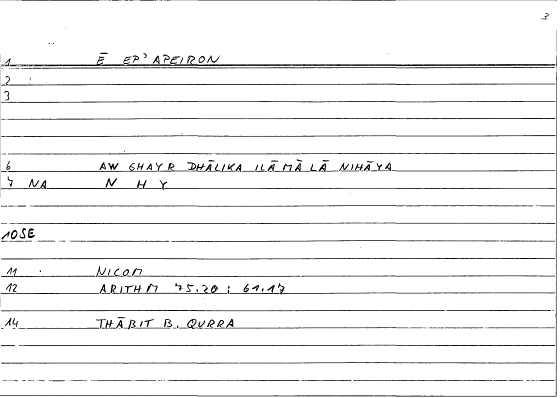 3
1 Ē EP' APEIRON
2
3
6 AW GHAYR DHĀLIKA ILĀ MĀ LĀ NIHĀYA
7 NA N H Y
10SE
11 NICOM
12 ARITHM 75.20 : 61.17
14 THĀBIT B. QURRA